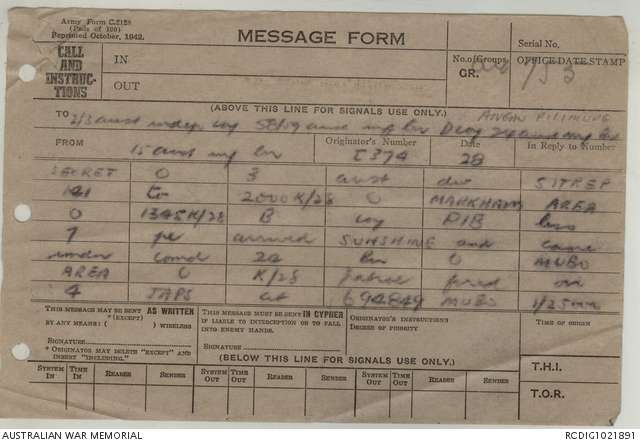 Army Form C.2128
(Pads of 100)
Reprinted October, 1942.
MESSAGE FORM
Serial No.
CALL AND INSTRUC-TIONS
IN
OUT
No. of Groups
GR.
OFFICE DATE STAMP
(ABOVE THIS LINE FOR SIGNALS USE ONLY.)
TO 2/3 aust indep coy 58/59 aust inf bn D coy 24 aust inf bn
FROM 15 aust inf bn
Originator's Number
Date 28
In Reply to Number
SECRET O 3 aust div SITREP
141 to 2000K/28 O MARKHAM AREA
O 1345K/28 B coy PIB less
7 pl arrived SUNSHINE and came
under comd 24 bn O MUBO
AREA O K/28 patrol fired on
4 JAPS at 694849 MUBO 1/25000
THIS MESSAGE MAY BE SENT AS WRITTEN
*(EXCEPT)
BY ANY MEANS ( ) WIRELESS
SIGNATURE
* ORIGINATOR MAY DELETE "EXCEPT" AND
INSERT "INCLUDING."
THIS MESSAGE MUST BE SENT IN CYPHER
IF LIABLE TO INTERCEPTION OR TO FALL
INTO ENEMY HANDS.
SIGNATURE
ORIGINATOR'S INSTRUCTIONS
DEGREE OF PRIORITY
TIME OF ORIGIN
(BELOW THIS LINE FOR SIGNALS USE ONLY.)
T.H.I.
SYSTEM IN TIME IN READER SENDER SYSTEM OUT TIME OUT READER SENDER SYSTEM OUT TIME OUT READER SENDER
T.O.R.
AUSTRALIAN WAR MEMORIAL
RCDIG1021891